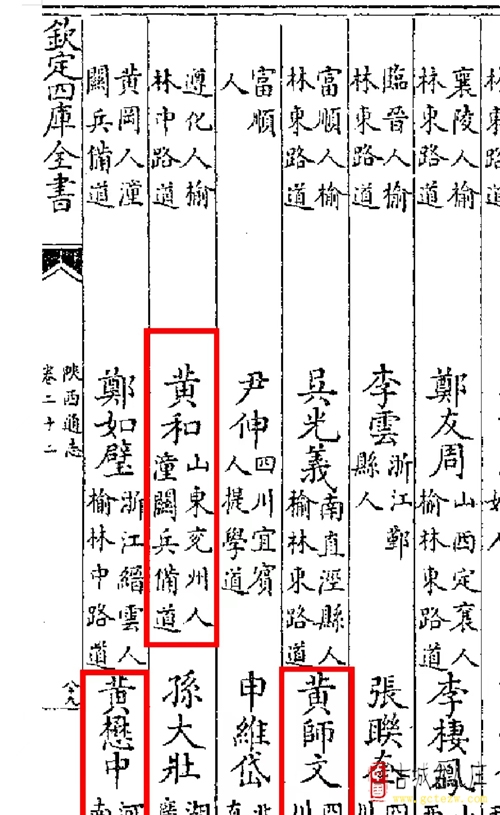 襄陵人榆
林東路道
鄭友周
山西定襄人
榆林東路道
李棲鳳
臨晉人榆
林東路道
李雲
浙江鄞
縣人
張聯
富順人榆
林東路道
吳光義
南直涇縣人
榆林東路道
黃師文
四
川
富順
人
尹伸
四川宜賓
人提學道
申維岱
遵化人榆
林中路道
黃和
山東兗州人
潼關兵備道
孫大壯
湖
黃岡人潼
關兵備道
鄭如璧
浙江縉雲人
榆林中路道
黃懋中
河
南
欽定四庫全書
陝西通志
卷二十二